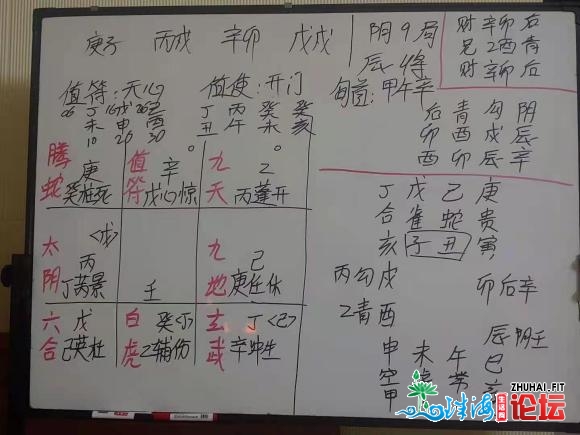 庚子 丙戌 辛卯 戊戌
阴9局
辰
值符:天心 值使:开门
旬首:甲午辛
06 丁 16戊 26己
未 申 酉
10 20 30
丁 丙 癸 癸
丑 午 未 亥
财 辛卯 后
兄 乙酉 青
财 辛卯 后
后 青 勾 阴
卯 酉 戌 辰
酉 卯 辰 辛
腾蛇 庚
值符 辛
九天 乙
癸柱死 戊心惊 丙蓬开
太阴 <戊> 丙
丁芮景
壬
九地 己
庚任休
六合 戊
己英杜
白虎 癸<丁>
乙辅伤
玄武 丁<己>
辛冲生
丁 戊 己 庚
合 雀 蛇 贵
亥 子 丑 寅
丙勾戌 卯后辛
乙青酉 辰阴壬
申 未 午 巳
空 常
甲
珠海 生活网 论坛
ZHUHAI.FIT